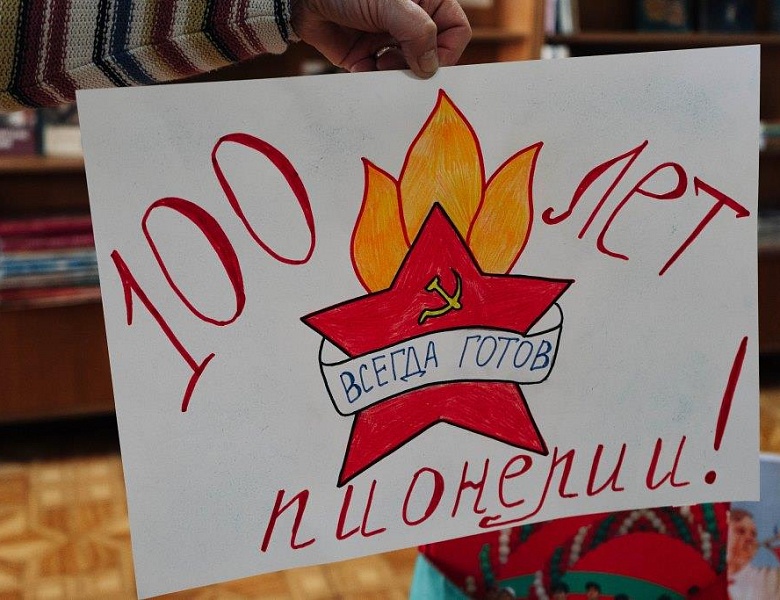 100 лет
ВСЕГДА ГОТОВ
пионерии!